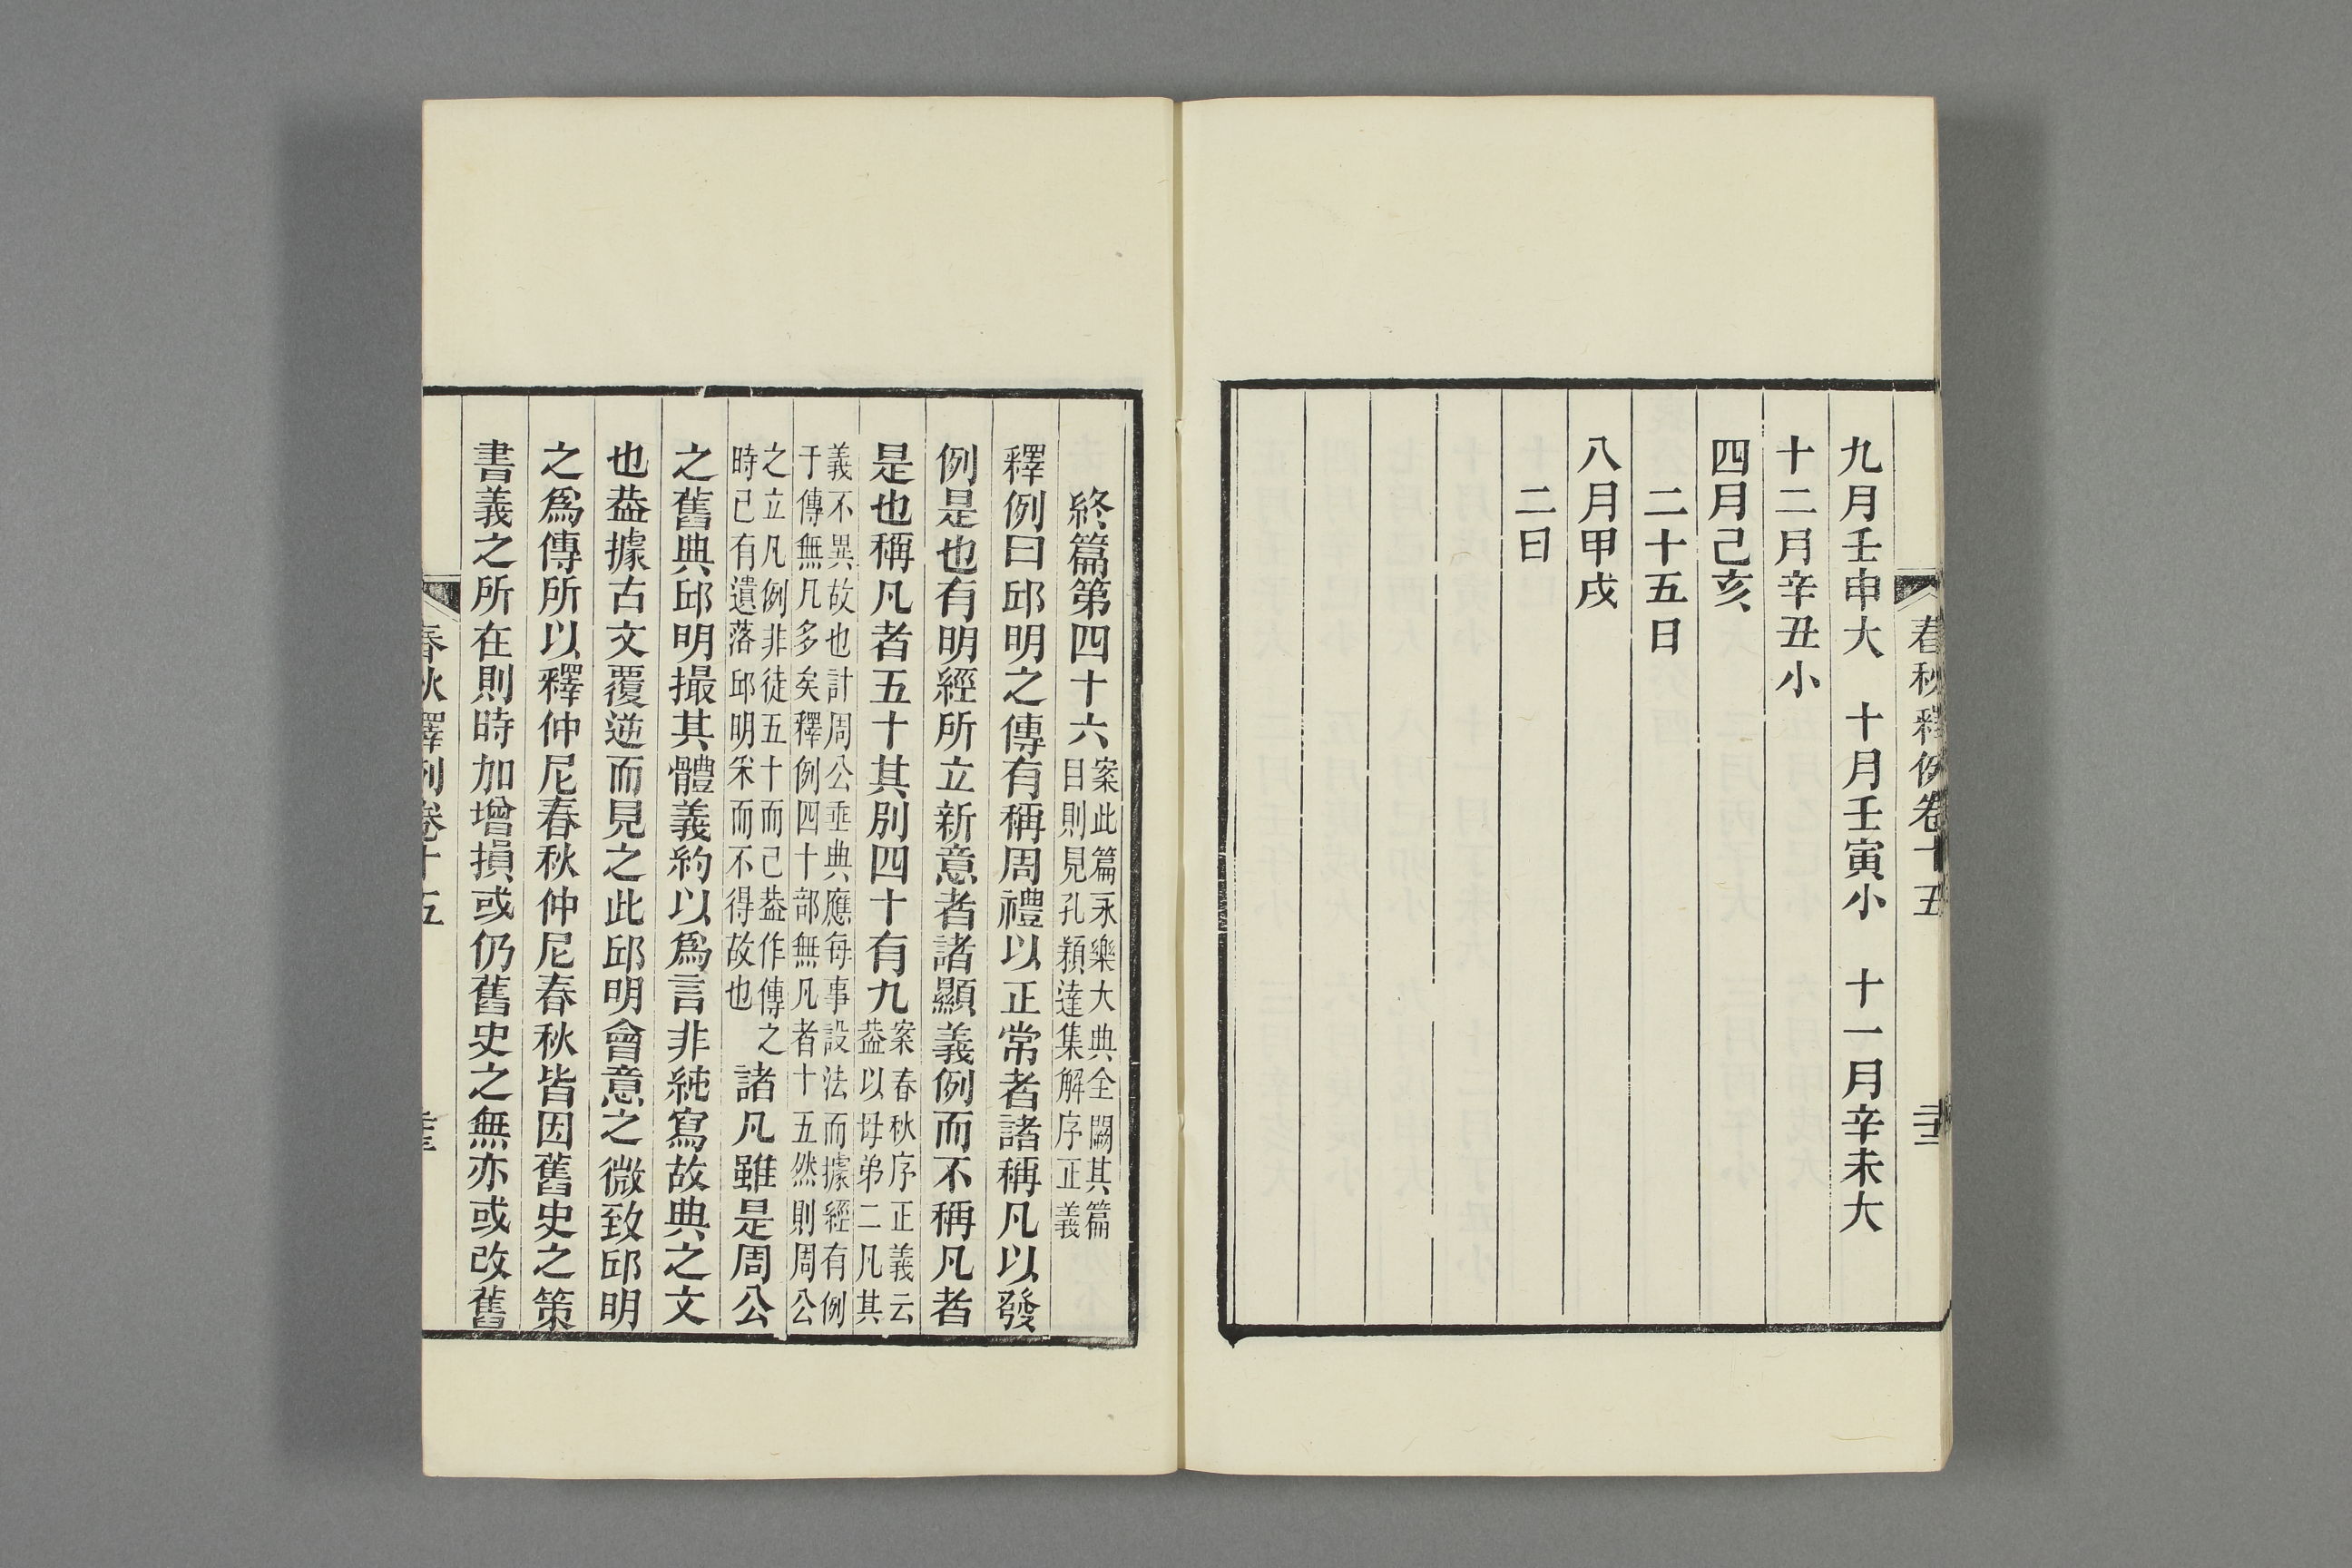 春秋釋例卷十五
九月壬申大　十月壬寅小　十一月辛未大
十二月辛丑小
四月己亥
二十五日
八月甲戌
二日
終篇第四十六案此篇永樂大典全闕其篇
目則見孔穎達集解序正義
釋例曰邱明之傳有稱周禮以正常者諸稱凡以發
例是也有明經所立新意者諸顯義例而不稱凡者
是也稱凡者五十其別四十有九案春秋序正義云
葢以母弟二凡其
義不異故也計周公垂典應每事設法而據經有例
于傳無凡多矣釋例四十部無凡者十五然則周公
之立凡例非徒五十而己葢作傳之
時己有遺落邱明采而不得故也諸凡雖是周公
之舊典邱明撮其體義約以爲言非純寫故典之文
也葢據古文覆逆而見之此邱明會意之微致邱明
之爲傳所以釋仲尼春秋仲尼春秋皆因舊史之策
書義之所在則時加增損或仍舊史之無亦或改舊
春秋釋例卷十五